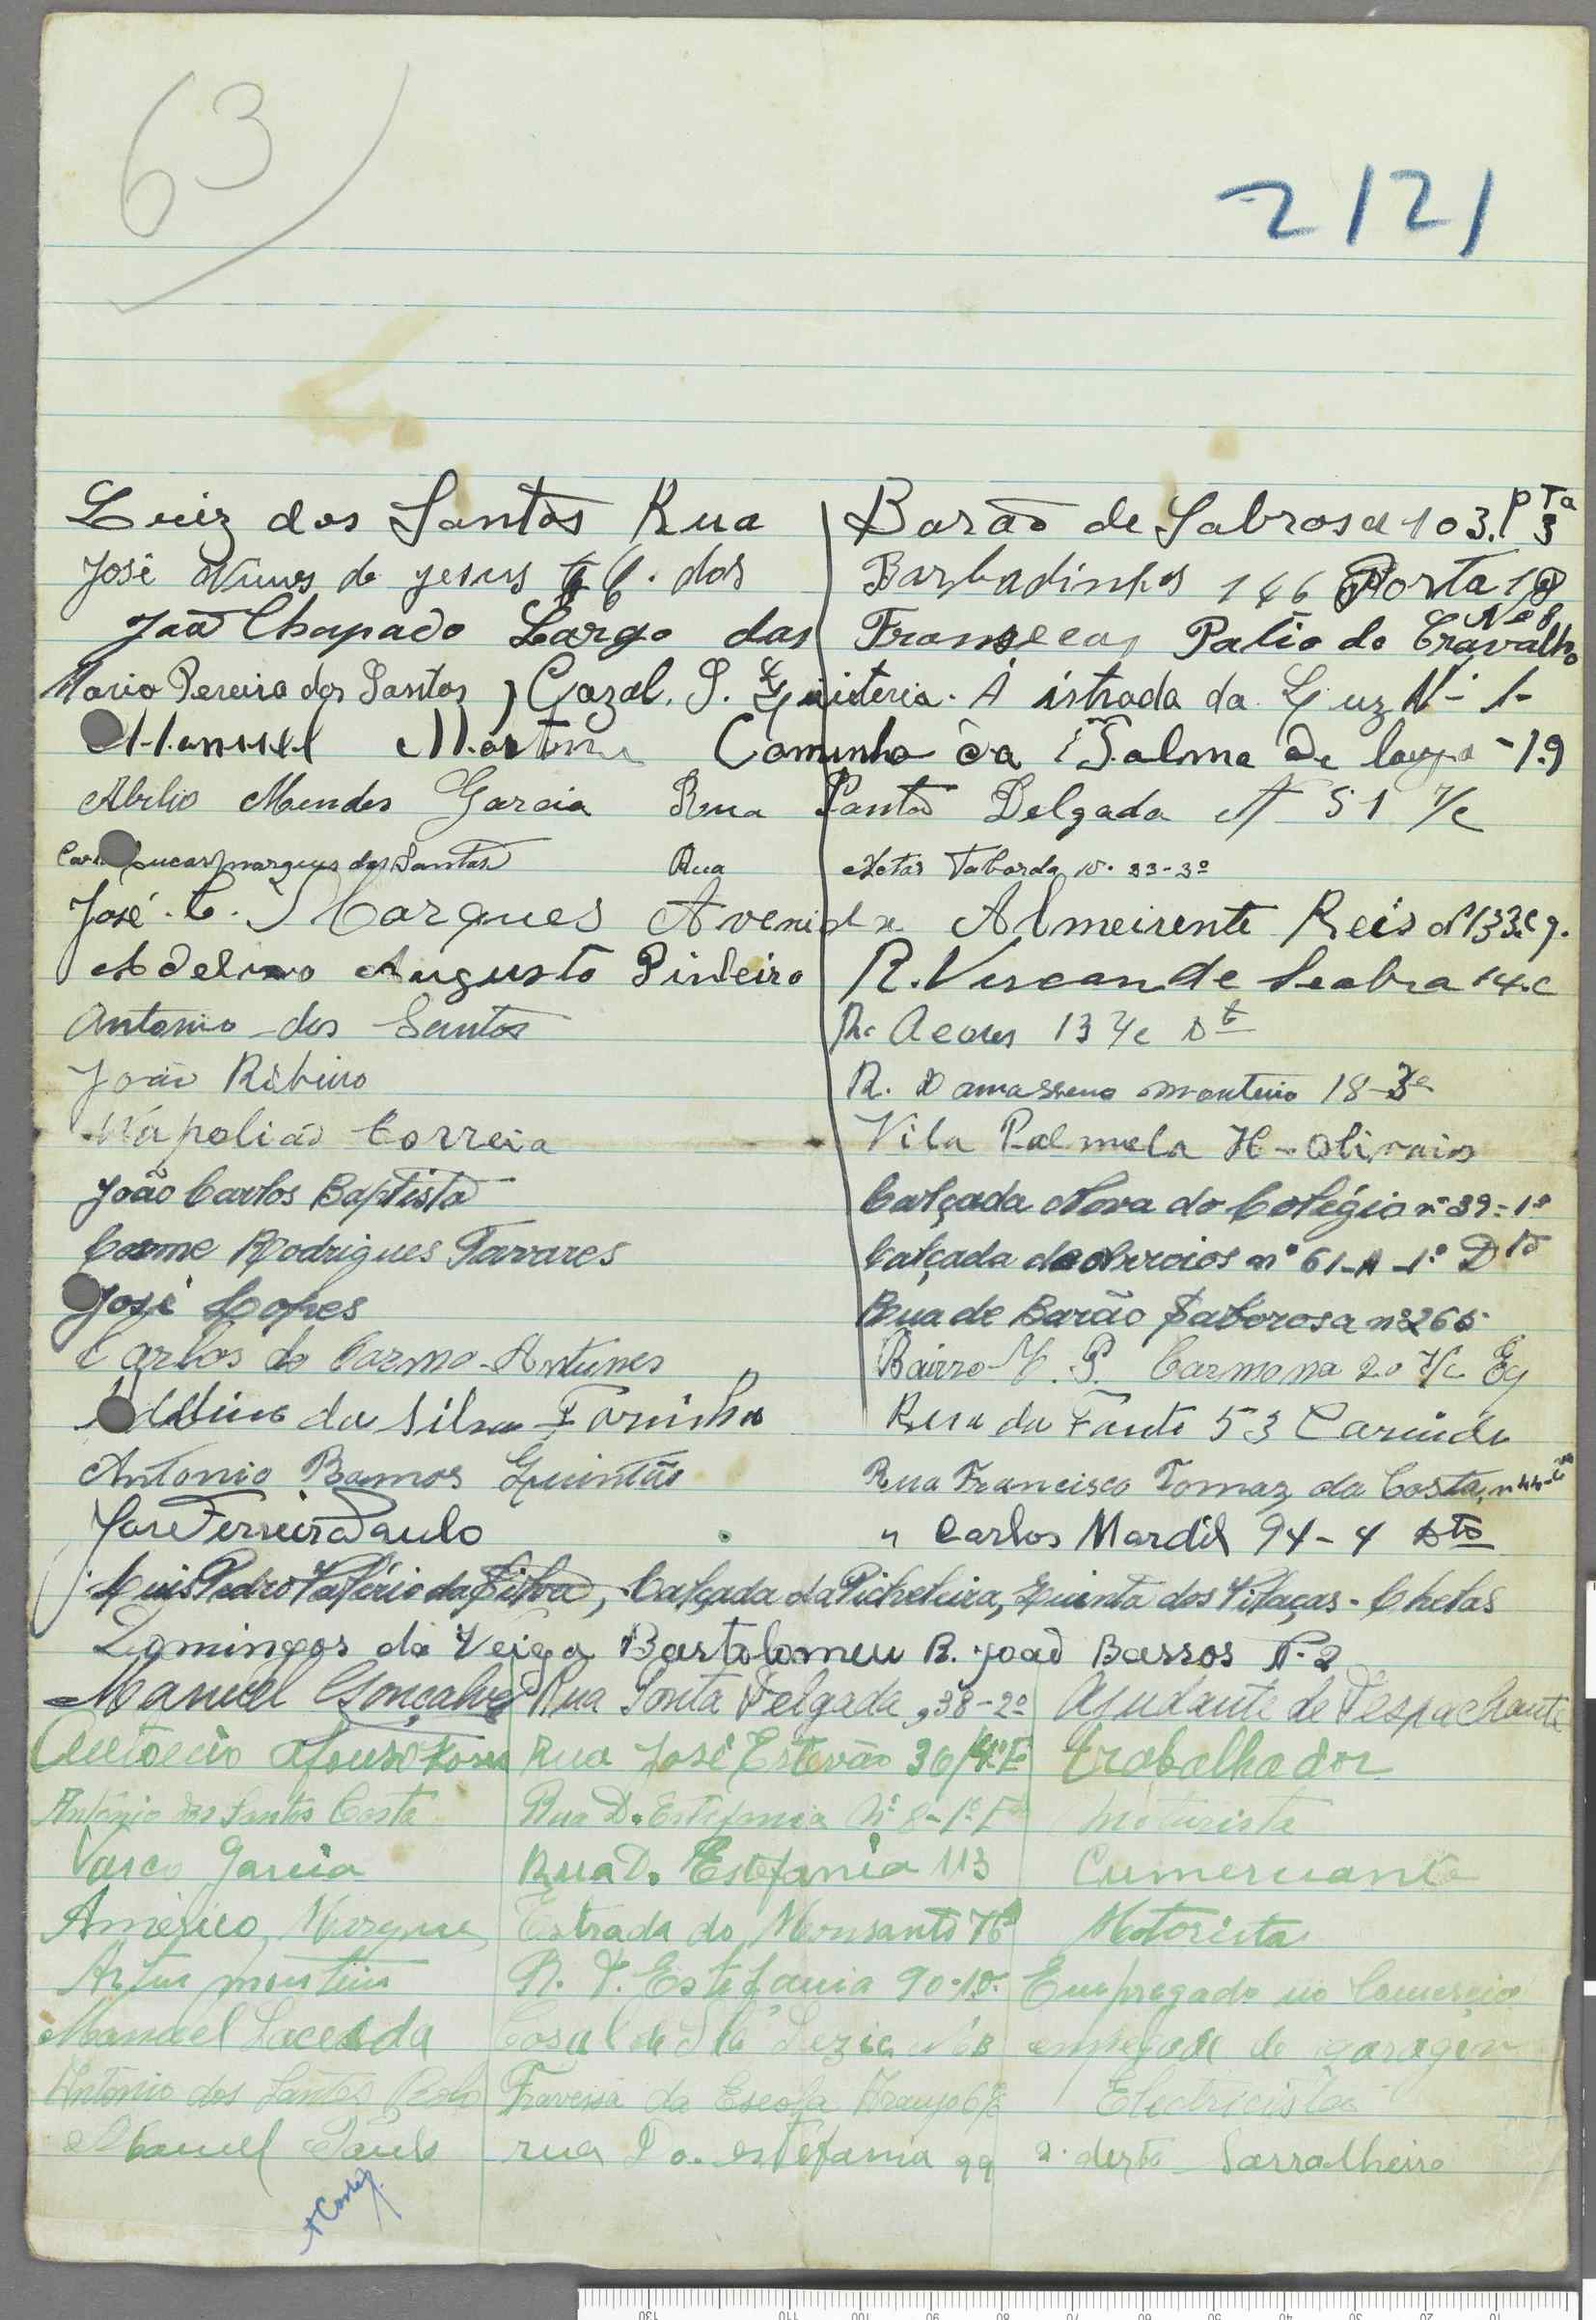 63
2121
Luiz dos Santos Rua Barão de Sabrosa 103. Pta 3
José Nunes de jesus C. dos Barbadinhos 146 Porta 18
João Chapado Largo das Fransecas Patio do Cravalho No 8
Mario Pereira dos Santos, Cazal. S. Quiteria. Á istrada da Luz Nº 1-
Manuel Martins Caminho da Palma de 19
Abilio Mendes Garcia Rua Ponta Delgada Nº 51 r/c
Lucas marques dos Santos Rua Taborda Nº 23-3º
José. C. Marques Avenida Almeirente Reis nº 133 c g.
Adelino Augusto Pinheiro R. Viscande Seabra 14.c
Antonio dos Santos R. Açores 13 r/c Dt
João Ribeiro R. Damasseno monteiro 18-3º
Nápolião Correia Vila Palmela H-Olivais
João Carlos Baptista Calçada Nova do Colégio nº 39-1º
Cosme Rodrigues Tavares Calçada de Arroios nº 61-A-1º Dto
José Lopes Rua de Barão Saborosa nº 265
Carlos do Carmo Antunes Bairro Carmona 20 r/c Eq
da Silva Farinha Rua da Fonte 53 Carnide
Antonio Ramos Quintas Rua Francisco Tomaz da Costa, nº 44
José Ferreira Paulo " Carlos Mardil 94-4 Dto
Luis Pedro Valério da Silva, Calçada da Picheleira, Quinta dos Vilaças - Chelas
Domingos da Veiga Bartolomeu R. joaõ Barros Nº 2
Manuel Gonçalves Rua Ponta Delgada, 38-2º Ajudante de Despachante
António Afonso Rua José Estevão 36 4º E trabalhador
António dos Santos Costa Rua D. Estefania Nº 8-1º Eº Moturista
Vasco Garcia Rua D. Estefania 113 Cumerciante
Américo Marques Estrada do Monsanto 76 Motorista
Artur R. D. Estefania 90-1º Empregado no Comercio
Manuel Lacerda Casal de Sta Luzia Nº 8 de garagem
António dos Santos Travessa da Escola Araujo 6 Electricista
Manuel Paulo rua Da. estefania 99 2º derto Sarralheiro